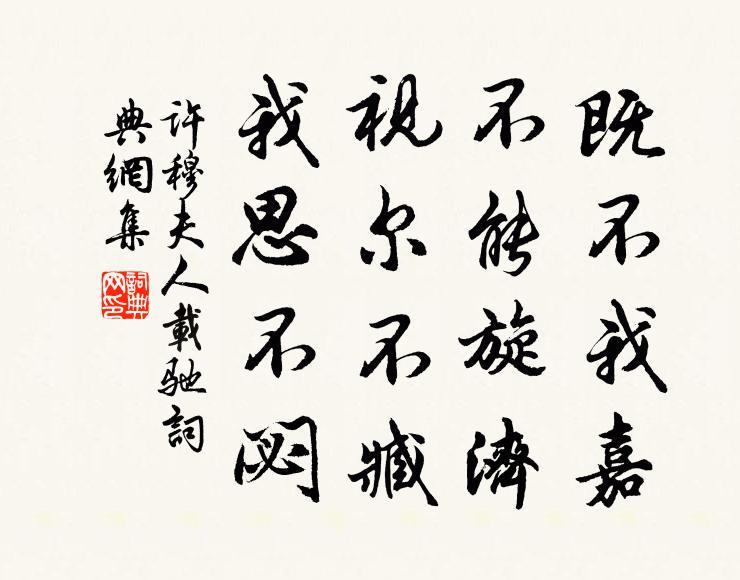 既不我嘉
不能旋濟
視尔不臧
我思不閟
許穆夫人載馳詞
典網集
詞典网印